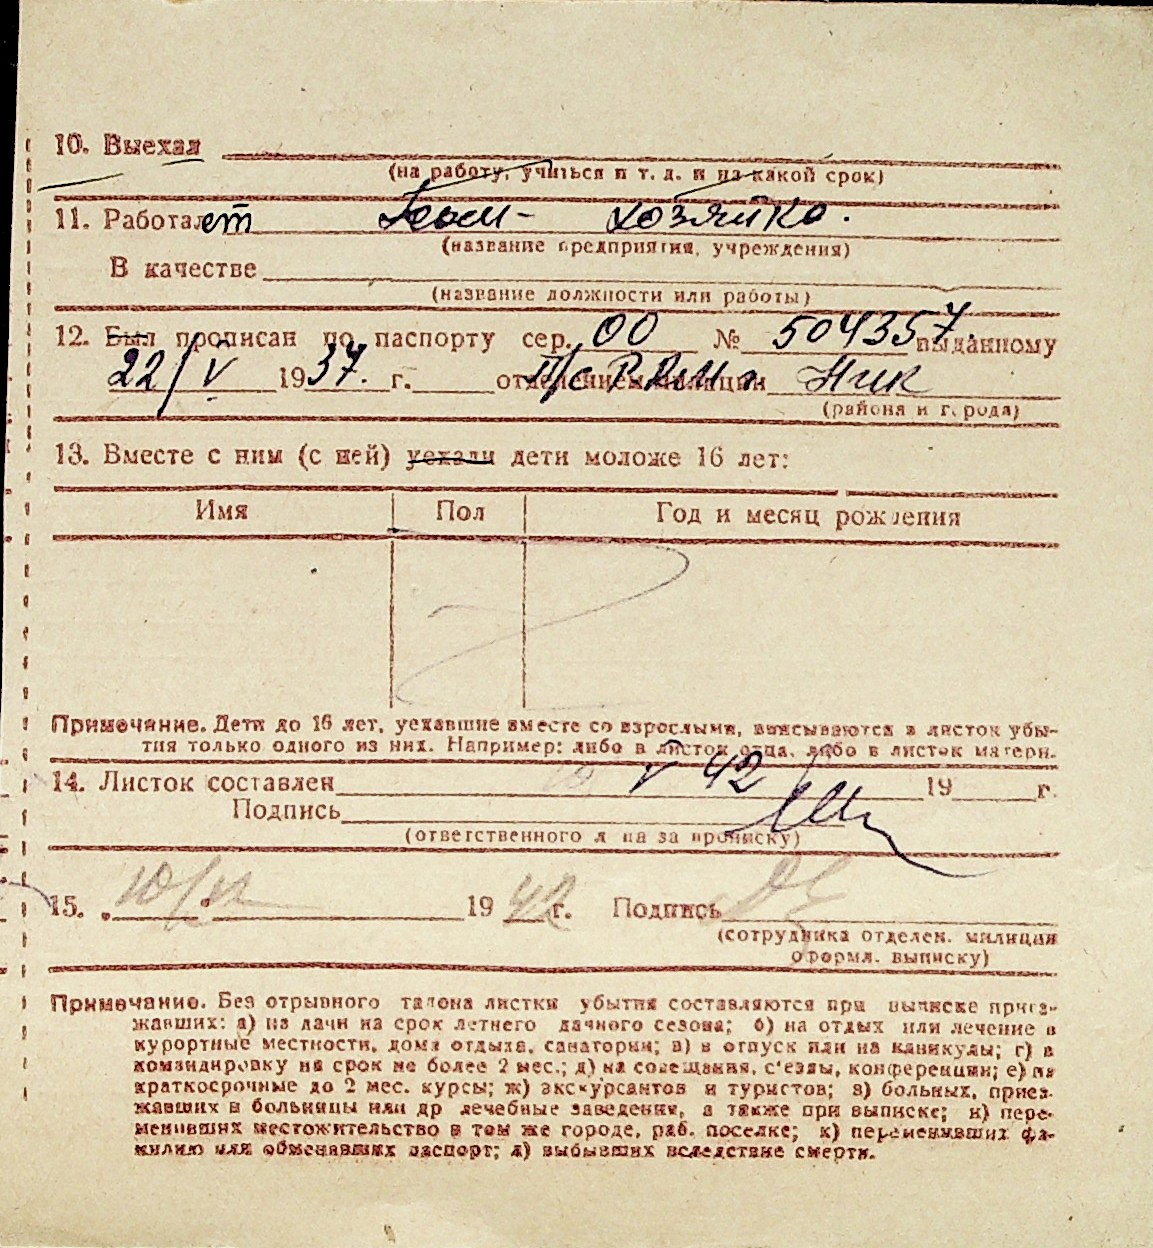 10. Выехал
(на работу, учиться и т. д. и на какой срок)
11. Работает Дом- хозяйка.
(название предприятия, учреждения)
В качестве
(название должности или работы)
12. Был прописан по паспорту сер. 00 № 504357 выданному
22/V 1937. г. отделением милиции
(района и города)
13. Вместе с ним (с ней) уехали дети моложе 16 лет:
Имя Пол Год и месяц рождения
Примечание. Дети до 16 лет, уехавшие вместе со взрослыми, вписываются в листок убы-
тия только одного из них. Например: либо в листок отца, либо в листок матери.
14. Листок составлен V 42 19 г.
Подпись
(ответственного лица за прописку)
15. 1942 г. Подпись
(сотрудника отделен. милиции
оформл. выписку)
Примечание. Без отрывного талона листки убытия составляются при выписке приез-
жавших: а) на дачи на срок летнего дачного сезона; б) на отдых или лечение в
курортные местности, дома отдыха, санатории; в) в отпуск или на каникулы; г) в
командировку на срок не более 2 мес.; д) на совещания, с'езды, конференции; е) на
краткосрочные до 2 мес. курсы; ж) экскурсантов и туристов; з) больных, приез-
жавших в больницы или др лечебные заведения, а также при выписке; и) пере-
менивших местожительство в том же городе, раб. поселке; к) переменивших фа-
милию или обменявших паспорт; л) выбывших вследствие смерти.